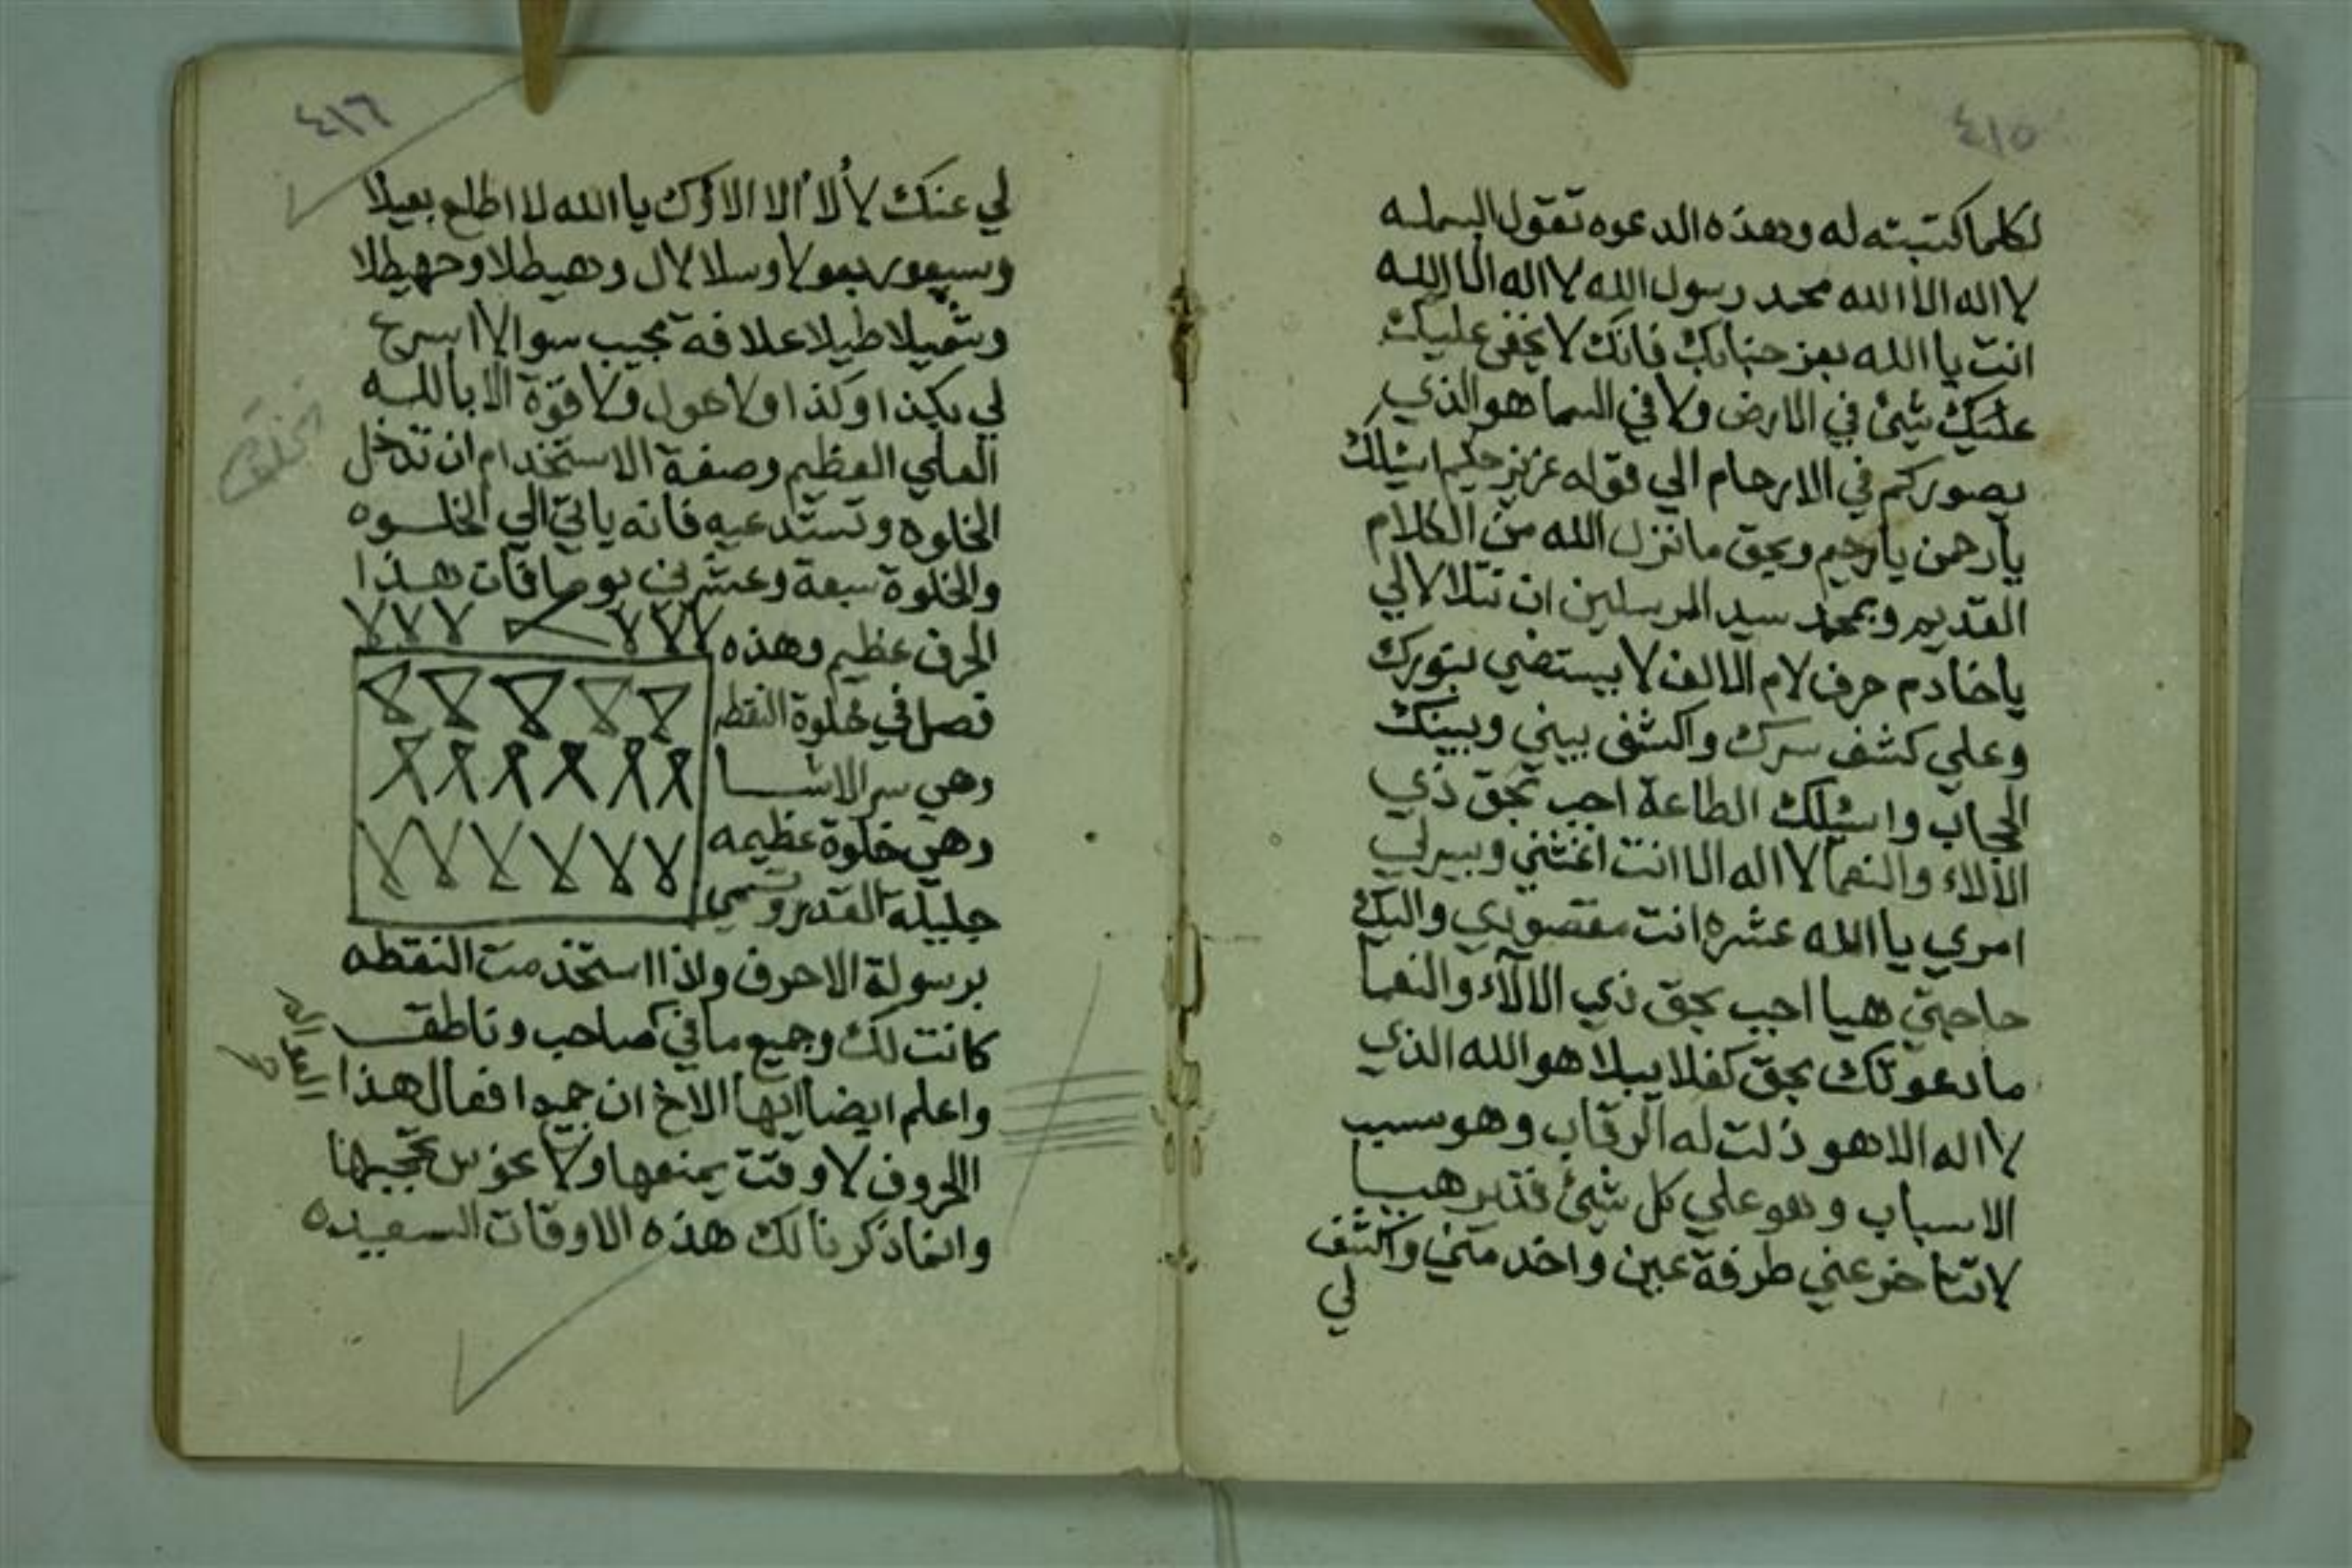 ٤١٥
لكلما كتبته له وهذه الدعوه تقول البسمله
لا اله الا الله محمد رسول الله لا اله الا الله
انت يا الله بعز جنابك فانك لا يخفى عليك
عليك شئ في الارض ولا في السما هو الذي
يصوركم في الارحام الي قوله عزيز حكيم اسئلك
يارحمن يارحيم وبحق ما نزل الله من الكلام
القديم وبمحمد سيد المرسلين ان تتلالا لي
ياخادم حرف لام الالف لا يستضي بنورك
وعلي كشف سرك واكشف بيني وبينك
الحجاب واسئلك الطاعة اجب بحق ذي
الالاء والنعما لا اله الا انت اغثني ويسرلي
امري يا الله عشره انت مقصودي واليك
حاجتي هيا اجب بحق ذي الالآء والنعما
ما دعوتك بحق كفلا يبلا هو الله الذي
لا اله الا هو ذلت له الرقاب وهو سبب
الاسباب وهو علي كل شئ قدير هيا
لا تتاخر عني طرفة عين واخدمني واكشف
لي
٤١٦
لي عنك لا ألا الا الا يا الله لا اطلع بعيلا
ولا وسلا لال وهيطلا وجهيطلا
طيلا علافة بجيب سوالا اسرع
لي بكذا وكذا ولا حول ولا قوة الا بالله
العلي العظيم وصفة الاستخدام ان تدخل
الخلوه وتستدعيه فانه ياتي الي الخلوه
والخلوة سبعة وعشرين يوما فان هذا
الحرف عظيم وهذه
فصل في خلوة النقطه
وهي سر الاشيا
وهي خلوة عظيمه
جليلة القدر وتسمي
برسولة الاحرف واذا استخدمت النقطه
كانت لك وجميع ما في صاحب وناطق
واعلم ايضا ايها الاخ ان جميع افعال هذا
الحروف لا وقت يمنعها ولا نحوس تحجبها
وانما ذكرنا لك هذه الاوقات السعيده